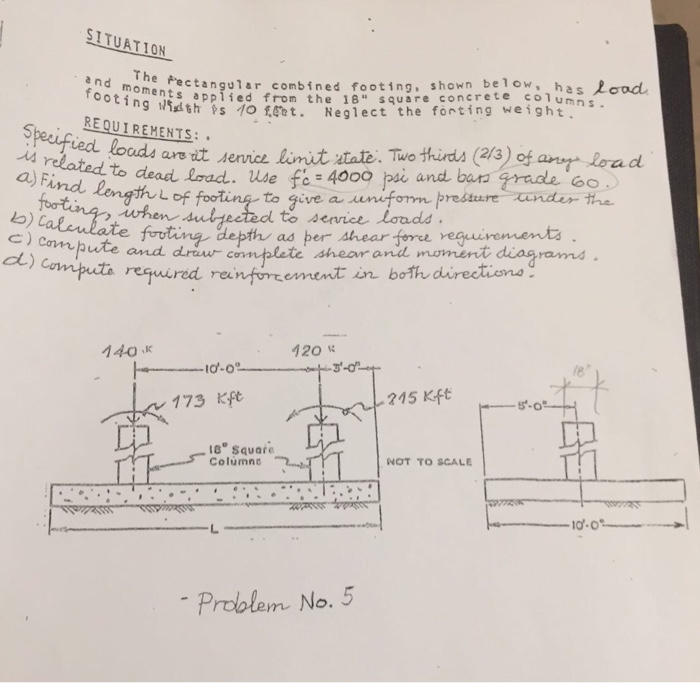 SITUATION
The Rectangular combined footing, shown below, has load
and moments applied from the 18" square concrete columns.
footing Width is 10 feet. Neglect the footing weight.
REQUIREMENTS:
Specified loads are at service limit state. Two thirds (2/3) of any load
is related to dead load. Use f'c = 4000 psi and bars grade 60.
a) Find length L of footing to give a uniform pressure under the
footing, when subjected to service loads.
b) Calculate footing depth as per shear force requirements.
c) compute and draw complete shear and moment diagrams.
d) compute required reinforcement in both directions.
140 K
120 K
10'-0"
3'-0"
18"
173 K-ft
215 K-ft
5'-0"
18" Square
Columns
NOT TO SCALE
L
10'-0"
- Problem No. 5